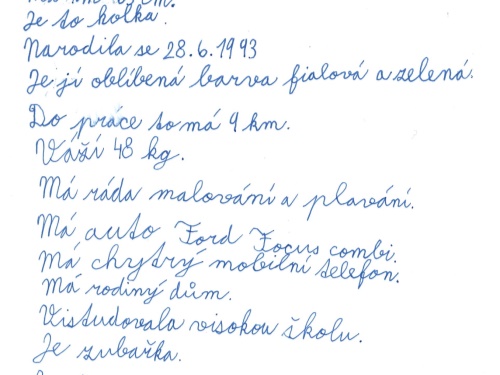 Je to holka.
Narodila se 28.6.1993
Je jí oblíbená barva fialová a zelená.
Do práce to má 9 km.
Váží 48 kg.
Má ráda malování a plavání.
Má auto Ford Focus combi.
Má chytrý mobilní telefon.
Má rodiný dům.
Vistudovala visokou školu.
Je zubařka.